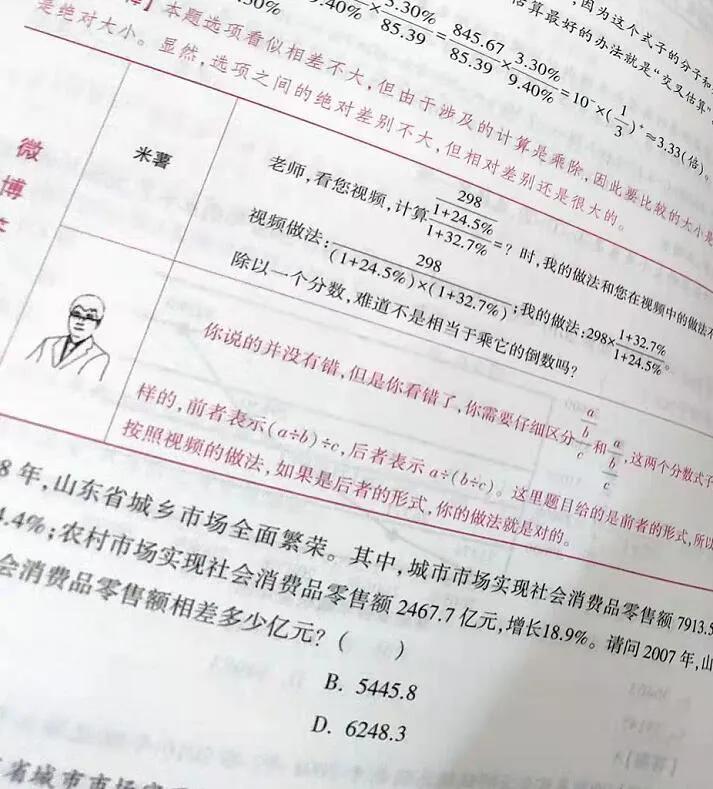 ,因为这个式子的分子和
估算最好的办法就是“交叉估算”
9.40%×3.30%/85.39=845.67/85.39×3.30%/9.40%=10⁻×(1/3)⁺≈3.33(倍)。
】本题选项看似相差不大,但由于涉及的计算是乘除,因此要比较的大小是
是绝对大小。显然,选项之间的绝对差别不大,但相对差别还是很大的。
微
博
米薯
老师,看您视频,计算298/(1+24.5%)/(1+32.7%)=?时,我的做法和您在视频中的做法不
视频做法:298/((1+24.5%)×(1+32.7%));我的做法:298×(1+32.7%)/(1+24.5%)。
除以一个分数,难道不是相当于乘它的倒数吗?
你说的并没有错,但是你看错了,你需要仔细区分a/b/c和a/b/c,这两个分数式子
样的,前者表示(a÷b)÷c,后者表示a÷(b÷c)。这里题目给的是前者的形式,所以
按照视频的做法,如果是后者的形式,你的做法就是对的。
8年,山东省城乡市场全面繁荣。其中,城市市场实现社会消费品零售额7913.5
4.4%;农村市场实现社会消费品零售额2467.7亿元,增长18.9%。请问2007年,山
会消费品零售额相差多少亿元?( )
B. 5445.8
D. 6248.3
省城市市场